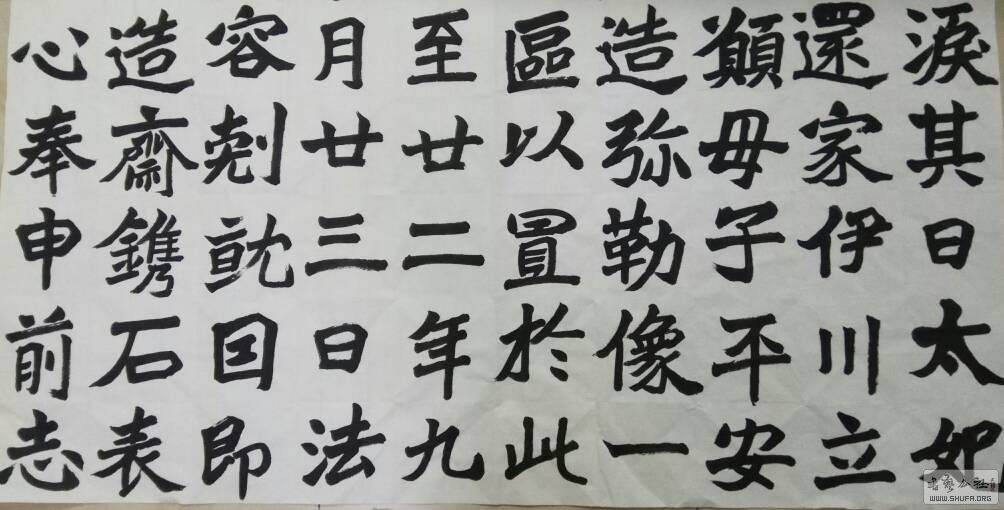 淚其日太妃
還家伊川立
願母子平安
造弥勒像一
區以置於此
至廿二年九
月廿三日法
容剋就因即
造齋鐫石表
心奉申前志
书艺公社
WWW.SHUFA.ORG